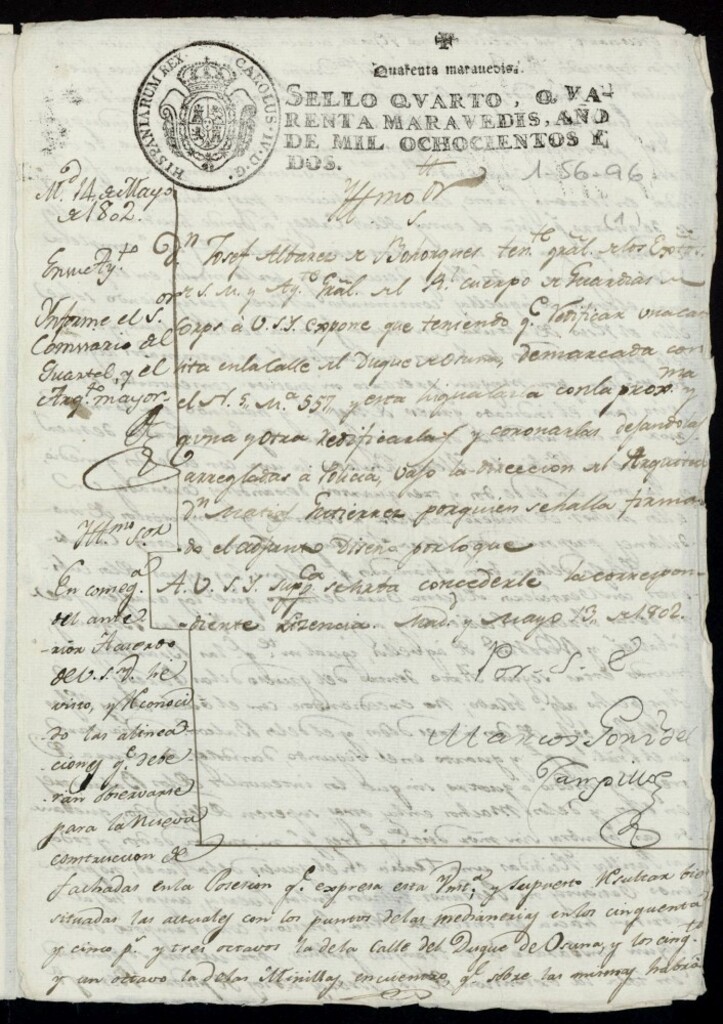 Quarenta maravedis.
SELLO QVARTO, QVA-
RENTA MARAVEDIS, AÑO
DE MIL OCHOCIENTOS Y
DOS.
HISPANIARUM REX. CAROLUS IV D. G.
1-56-96
(1)
Illmo Sor
Md. 14 de Mayo
de 1802.
En su Ayto
Informe el Sor
Comisario del
Quartel, y el
Arqto mayor.
Dn Josef Albarez de Bohorques tente gral. de los Extos
de S. M. y Ayte Gral. del Rl. cuerpo de Guardias de
Corps à V.S.Y. expone que teniendo qe redificar una ca
sita en la Calle del Duque de Osuna, demarcada con
el N. 5, Ma 557, y esta igualarla con la proxma y
una y otra redificarlas y coronarlas dejandolas
arregladas à Policia, vajo la direccion del Arquitecto
Dn Mateo Gutierrez por quien se halla firma
do el adjunto Diseño por lo que
A V.S.Y. supca se sirva concederle la correspon
diente Lizencia. Madd y Mayo 13, de 1802.
Por S. E.
Marcos Gonz del
Campillo
Illmo Sor
En consega
del ante
rior Acuerdo
de V.S.Y. he
visto, y reconoci
do las alinea
ciones qe debe
rán observarse
para la nueva
construccion de
fachadas en la Posesion qe expresa esta Insta, y supuesto resultar bien
situadas las actuales con los puntos de las medianerias en los cinquenta
y cinco ps y tres octavos la de la Calle del Duque de Osuna, y los cinqta
y un octavo la de las Minillas, encuentro, qe sobre las mismas habrá